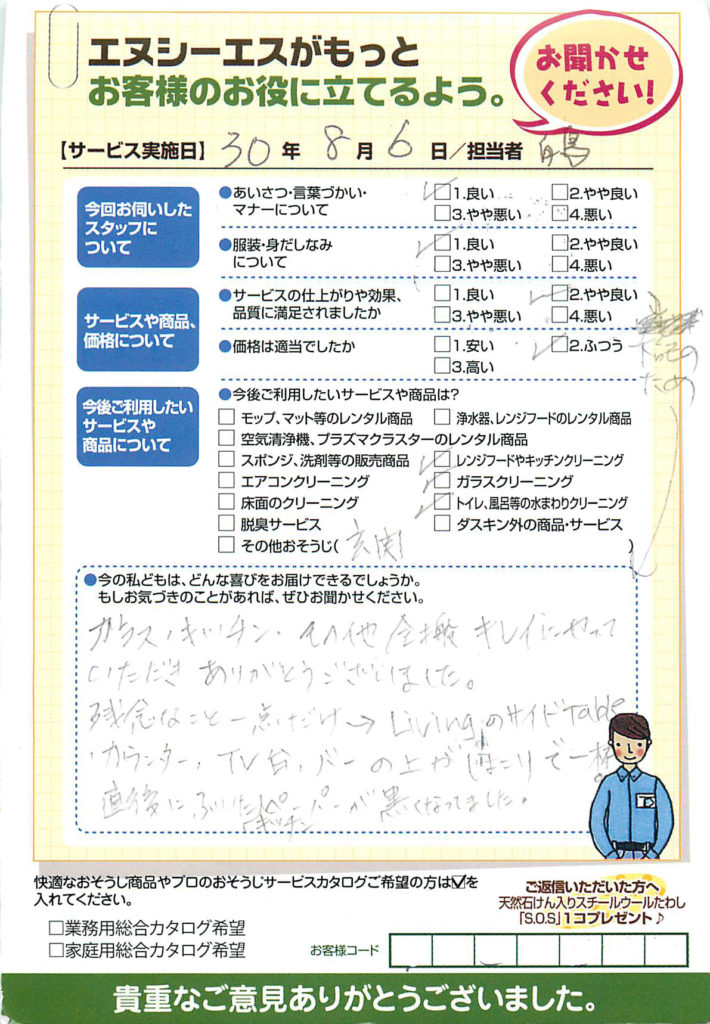 エヌシーエスがもっと
お客様のお役に立てるよう。
お聞かせ
ください!
【サービス実施日】 30 年 8 月 6 日/担当者
今回お伺いした
スタッフに
ついて
●あいさつ・言葉づかい・
マナーについて
□1.良い □2.やや良い
□3.やや悪い □4.悪い
●服装・身だしなみ
について
□1.良い □2.やや良い
□3.やや悪い □4.悪い
サービスや商品、
価格について
●サービスの仕上がりや効果、
品質に満足されましたか
□1.良い □2.やや良い
□3.やや悪い □4.悪い
●価格は適当でしたか
□1.安い □2.ふつう
□3.高い
下記の
ため
今後ご利用したい
サービスや
商品について
●今後ご利用したいサービスや商品は?
□ モップ、マット等のレンタル商品 □ 浄水器、レンジフードのレンタル商品
□ 空気清浄機、プラズマクラスターのレンタル商品
□ スポンジ、洗剤等の販売商品 □ レンジフードやキッチンクリーニング
□ エアコンクリーニング □ ガラスクリーニング
□ 床面のクリーニング □ トイレ、風呂等の水まわりクリーニング
□ 脱臭サービス □ ダスキン外の商品・サービス
□ その他おそうじ( 玄関 )
●今の私どもは、どんな喜びをお届けできるでしょうか。
もしお気づきのことがあれば、ぜひお聞かせください。
ガラス・キッチン・その他 全搬 キレイにやって
いただき ありがとうございました。
残念なこと一点だけ→ Livingのサイドtable
・カウンター, TV台, バーの上がほこりで一杯。
直後にふいたペーパーが黒くなってました。
キッチン
快適なおそうじ商品やプロのおそうじサービスカタログご希望の方は☑を
入れてください。
□業務用総合カタログ希望
□家庭用総合カタログ希望
ご返信いただいた方へ
天然石けん入りスチールウールたわし
「S.O.S」1コプレゼント♪
お客様コード
貴重なご意見ありがとうございました。